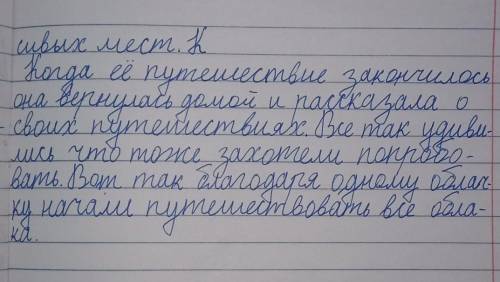 сивых мест. К
Когда её путешествие закончилось
она вернулась домой и рассказала о
своих путешествиях. Все так удиви-
лись что тоже захотели попробо-
вать. Вот так благодаря одному облач-
ку начали путешествовать все обла-
ка.